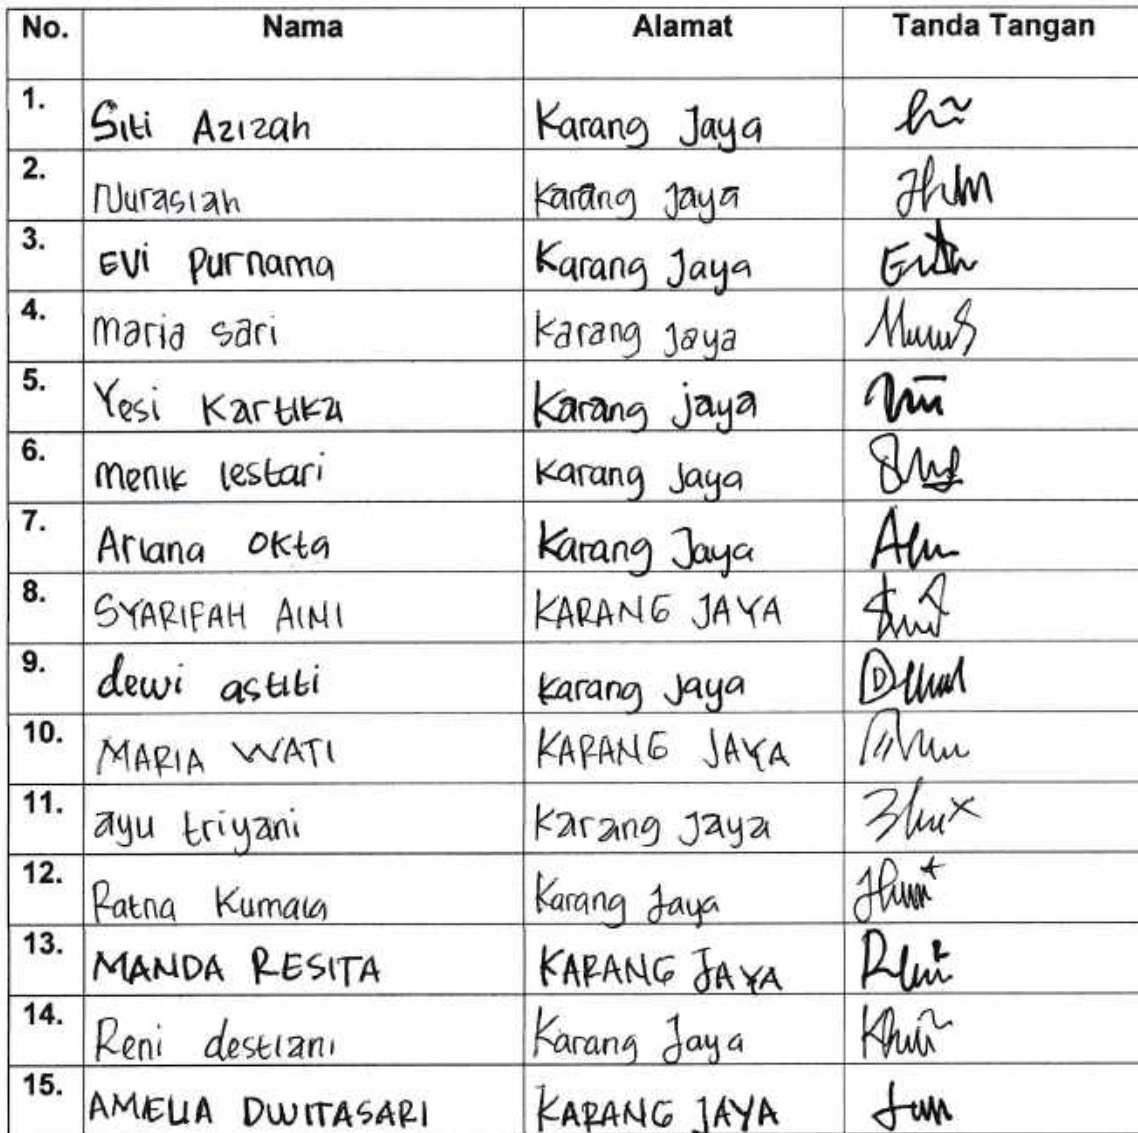 No. Nama Alamat Tanda Tangan
1. Siti Azizah Karang Jaya
2. Nurasiah Karang Jaya
3. Evi Purnama Karang Jaya
4. maria sari Karang Jaya
5. Yesi Kartika Karang jaya
6. menik lestari Karang Jaya
7. Ariana Okta Karang Jaya
8. SYARIFAH AINI KARANG JAYA
9. dewi astiti Karang Jaya
10. MARIA WATI KARANG JAYA
11. ayu triyani Karang Jaya
12. Ratna Kumala Karang Jaya
13. MANDA RESITA KARANG JAYA
14. Reni destiani Karang Jaya
15. AMELIA DWITASARI KARANG JAYA